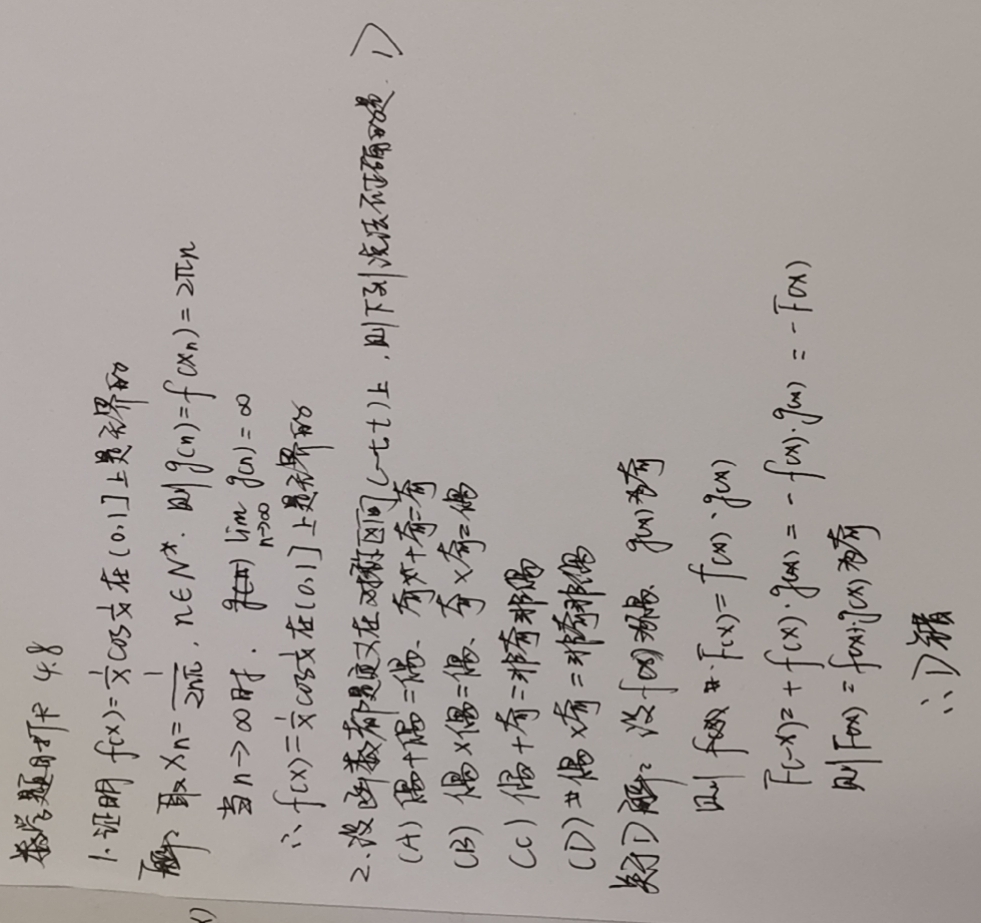 数学题目打卡 4.8
1.证明 f(x)=1/x cos 1/x 在(0,1]上是无界的
解: 取 Xn=1/2nπ, n∈N*. 则 g(n)=f(xn)=2πn
当n→∞时. lim n→∞ g(n)=∞
∴ f(x)=1/x cos 1/x 在(0,1]上是无界的
2.设函数都是定义在对称区间(-t,t)上,则下列说法不正确的是. D
(A) 偶+偶=偶、奇+奇=奇
(B) 偶×偶=偶、奇×奇=偶
(C) 偶+奇=非奇非偶
(D) 偶×奇=非奇非偶
关于D 解: 设 f(x)为偶、g(x)为奇
则 F(x)=f(x)·g(x)
F(-x)=+f(x)·g(x)=-f(x)·g(x)=-F(x)
则F(x)=f(x)·g(x)为奇
∴D错
x)